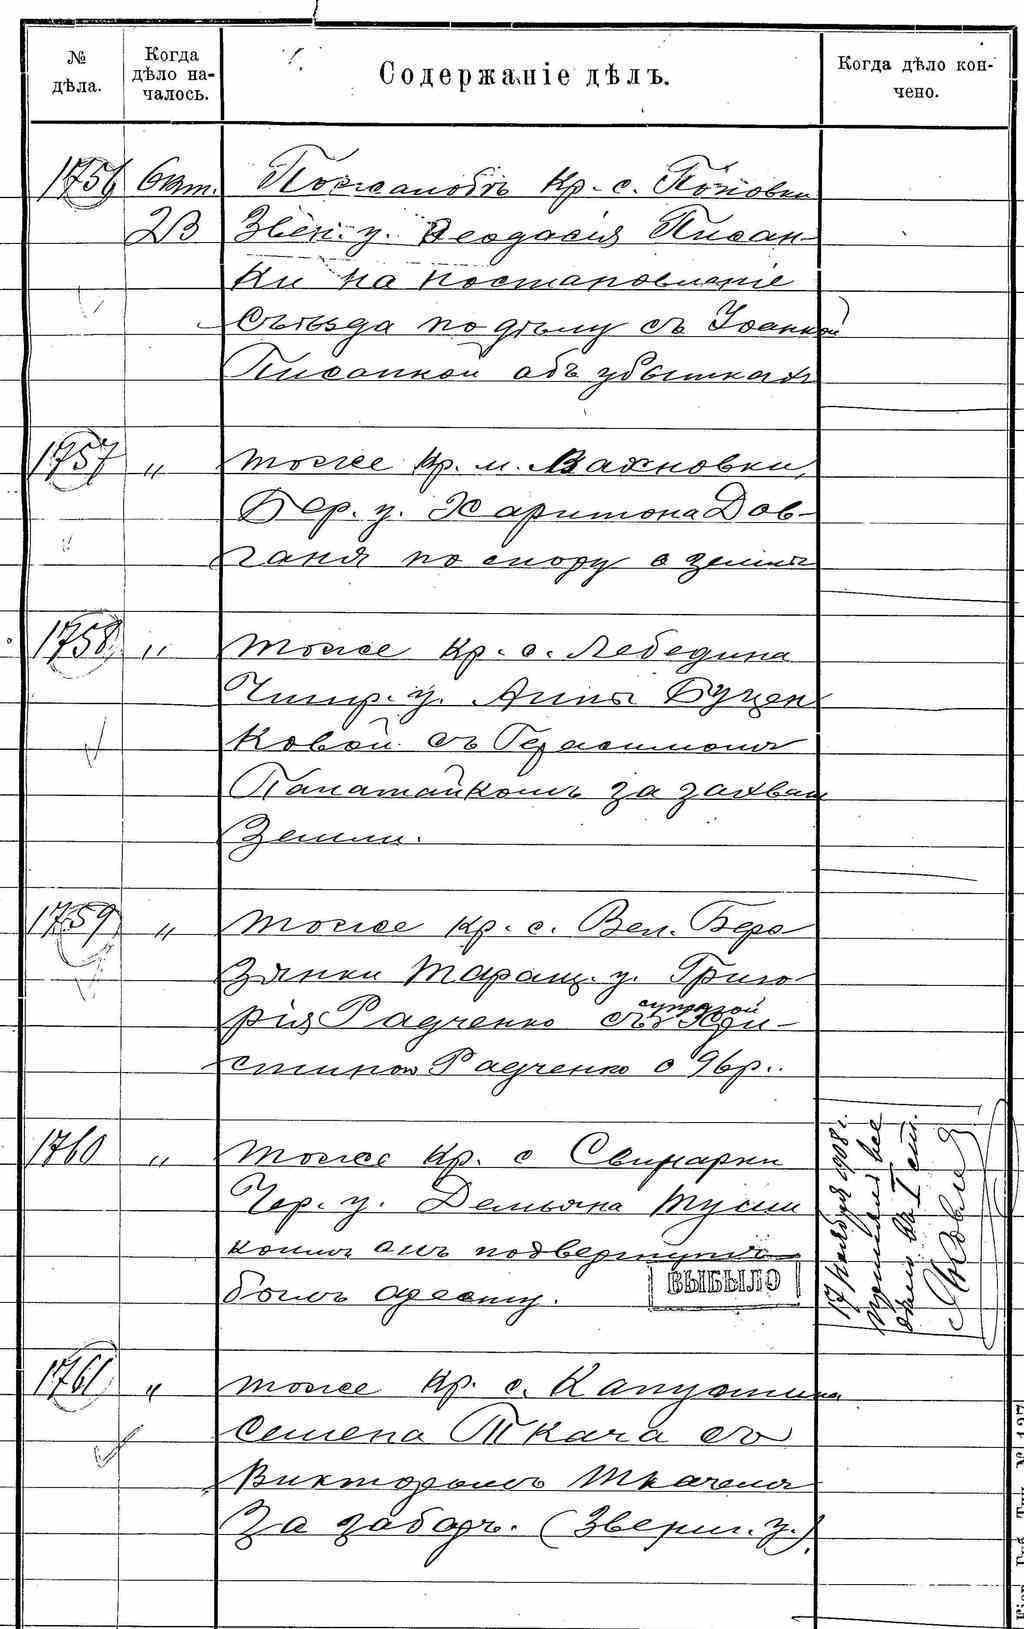 № дѣла.
Когда дѣло на-
чалось.
Содержаніе дѣлъ.
Когда дѣло кон-
чено.
1756 Окт. По жалобѣ кр. с. Поповки
23 Звен. у. Феодосія Писан-
ки на постановленіе
Съѣзда по дѣлу съ Іоанной
Писанкой объ убыткахъ
1757 " тоже кр. м. Вахновки,
Бер. у. Харитона Дов-
ганя по спору о землѣ
1758 " тоже кр. с. Лебедина
Чигир. у. Анны Буцен
ковой съ Герасимомъ
за захватъ
земли.
1759 " тоже кр. с. Вел. Бере
зянки Таращ. у. Григо-
рія Радченко съ супругой Хри-
стиной Радченко о 96 р.
1760 " тоже кр. с. Свинарки
Чер. у. Демьяна
коимъ онъ подвергнутъ
былъ аресту.
ВЫБЫЛО
17 ноября 1908 г.
все
дѣло въ I стп.
1761 " тоже кр. с. Капустина
Семена Ткача съ
Викторомъ Ткачемъ
за заборъ. (Звениг. у.)